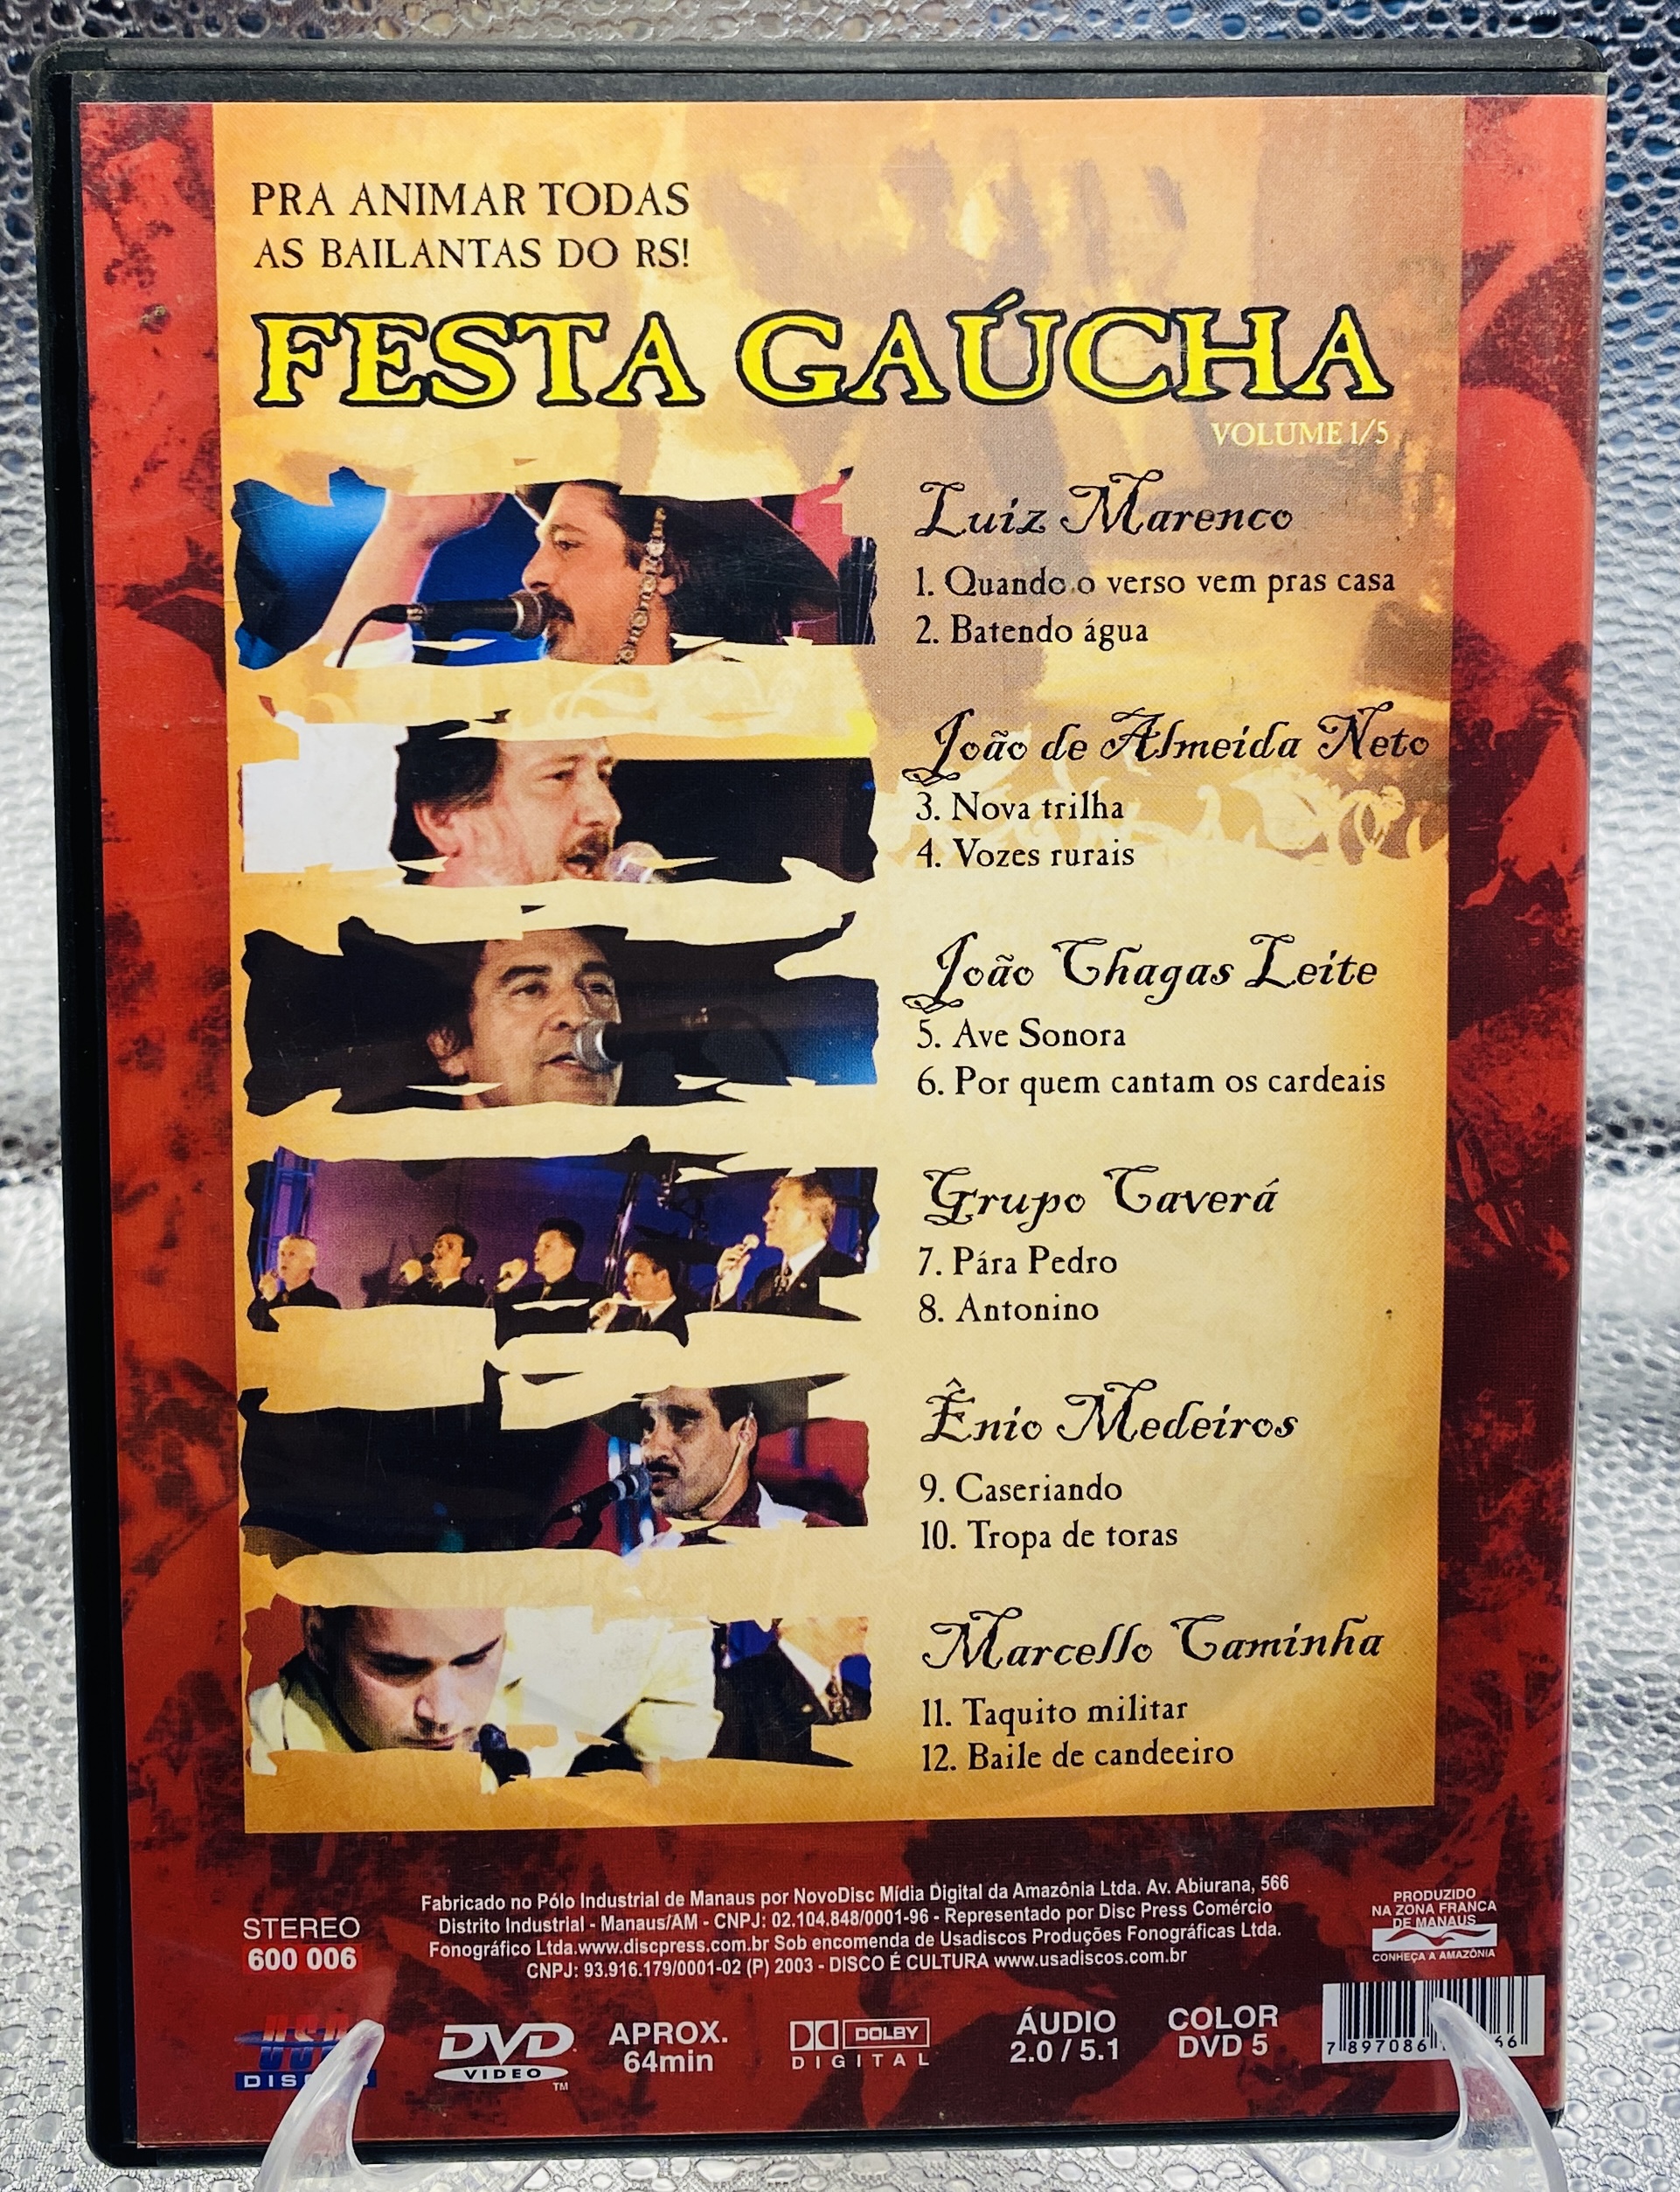 PRA ANIMAR TODAS
AS BAILANTAS DO RS!
FESTA GAÚCHA
VOLUME 1/5
Luiz Marenco
1. Quando o verso vem pras casa
2. Batendo água
João de Almeida Neto
3. Nova trilha
4. Vozes rurais
João Chagas Leite
5. Ave Sonora
6. Por quem cantam os cardeais
Grupo Caverá
7. Pára Pedro
8. Antonino
Ênio Medeiros
9. Caseriando
10. Tropa de toras
Marcello Caminha
11. Taquito militar
12. Baile de candeeiro
STEREO
600 006
Fabricado no Pólo Industrial de Manaus por NovoDisc Mídia Digital da Amazônia Ltda. Av. Abiurana, 566
Distrito Industrial - Manaus/AM - CNPJ: 02.104.848/0001-96 - Representado por Disc Press Comércio
Fonográfico Ltda.www.discpress.com.br Sob encomenda de Usadiscos Produções Fonográficas Ltda.
CNPJ: 93.916.179/0001-02 (P) 2003 - DISCO É CULTURA www.usadiscos.com.br
PRODUZIDO
NA ZONA FRANCA
DE MANAUS
CONHEÇA A AMAZÔNIA
DVD
VIDEO
TM
APROX.
64min
DOLBY
DIGITAL
ÁUDIO
2.0 / 5.1
COLOR
DVD 5
7 897086